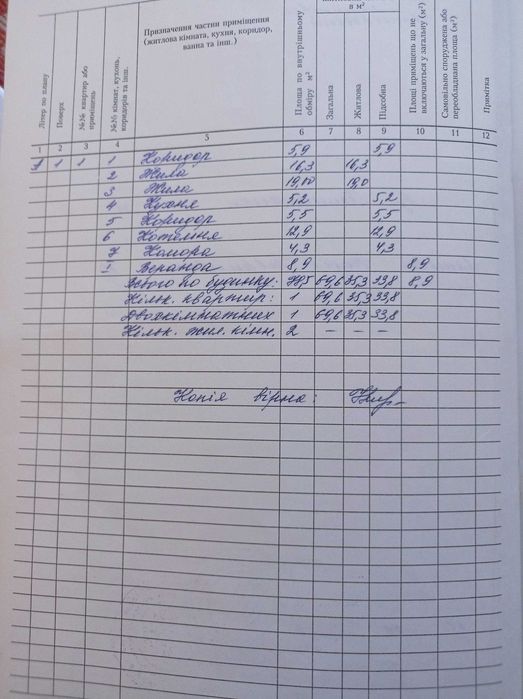 Літер по плану
Поверх
№№ квартир або приміщень
№№ кімнат, кухонь, коридорів та інш.
Призначення частини приміщення
(житлова кімната, кухня, коридор,
ванна та інш.)
Площа по внутрішньому обміру м²
в м²
Загальна
Житлова
Підсобна
Площі приміщень що не включаються у загальну (м²)
Самовільно споруджена або переобладнана площа (м²)
Примітка
1 2 3 4 5 6 7 8 9 10 11 12
А 1 1 1 Коридор 5,9 5,9
2 Жила 16,3 16,3
3 Жила 19,00 19,0
4 Кухня 5,2 5,2
5 Коридор 5,5 5,5
6 Котельня 12,9 12,9
7 Комора 4,3 4,3
I Веранда 8,9 8,9
Всього по будинку: 78,5 69,6 35,3 33,8 8,9
Кільк. квартир: 1 69,6 35,3 33,8
Двохкімнатних 1 69,6 35,3 33,8
Кільк. жил. кімн. 2 – – –
Копія вірна: